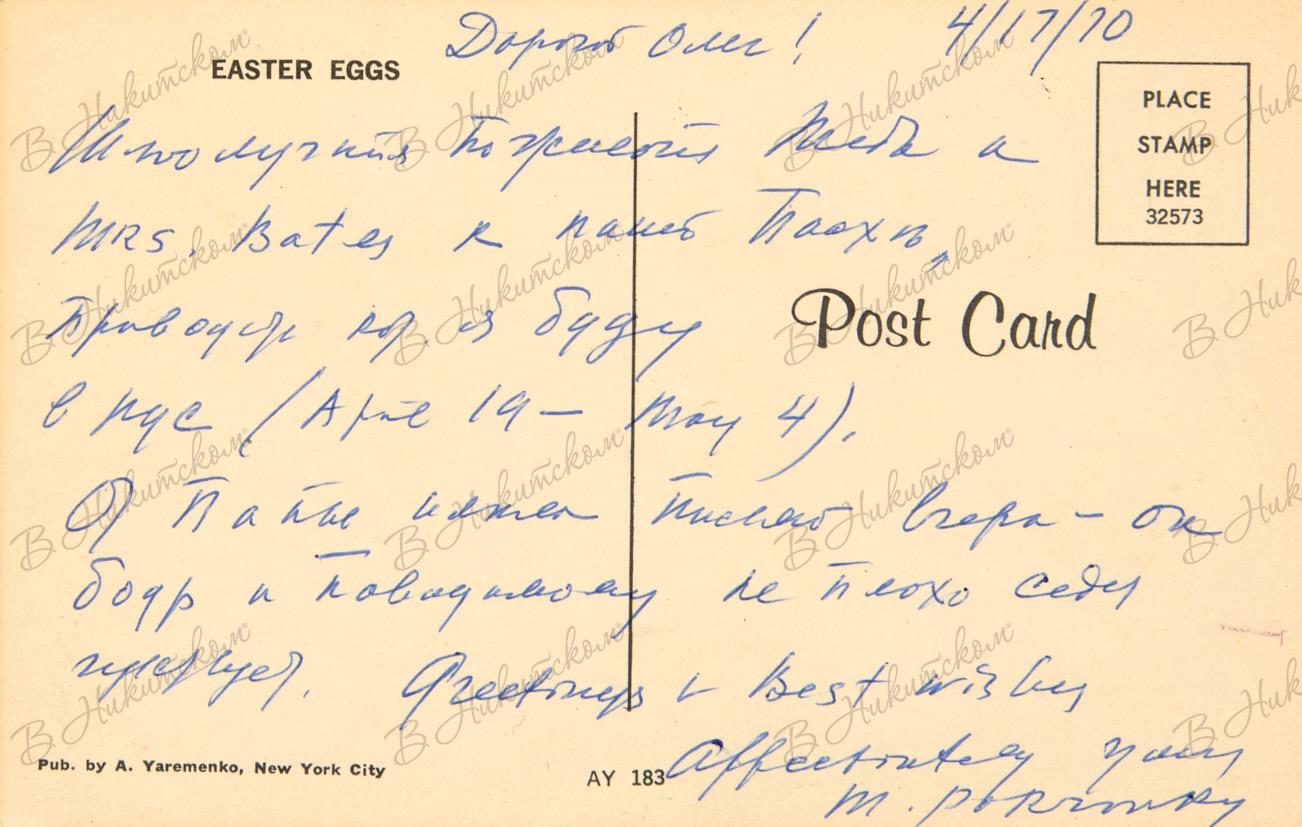 Дорогой Олег! 4/17/70
EASTER EGGS
PLACE
STAMP
HERE
32573
Тебя и
Mrs. Bates к нашей Пасхе,
я буду
в НУС (April 19 — May 4).
Post Card
От Пати имел письмо вчера — он
бодр и повидимому не плохо себя
чувствует. Greetings & Best wishes
Affectionately yours
M.
Pub. by A. Yaremenko, New York City
AY 183
В Никитском